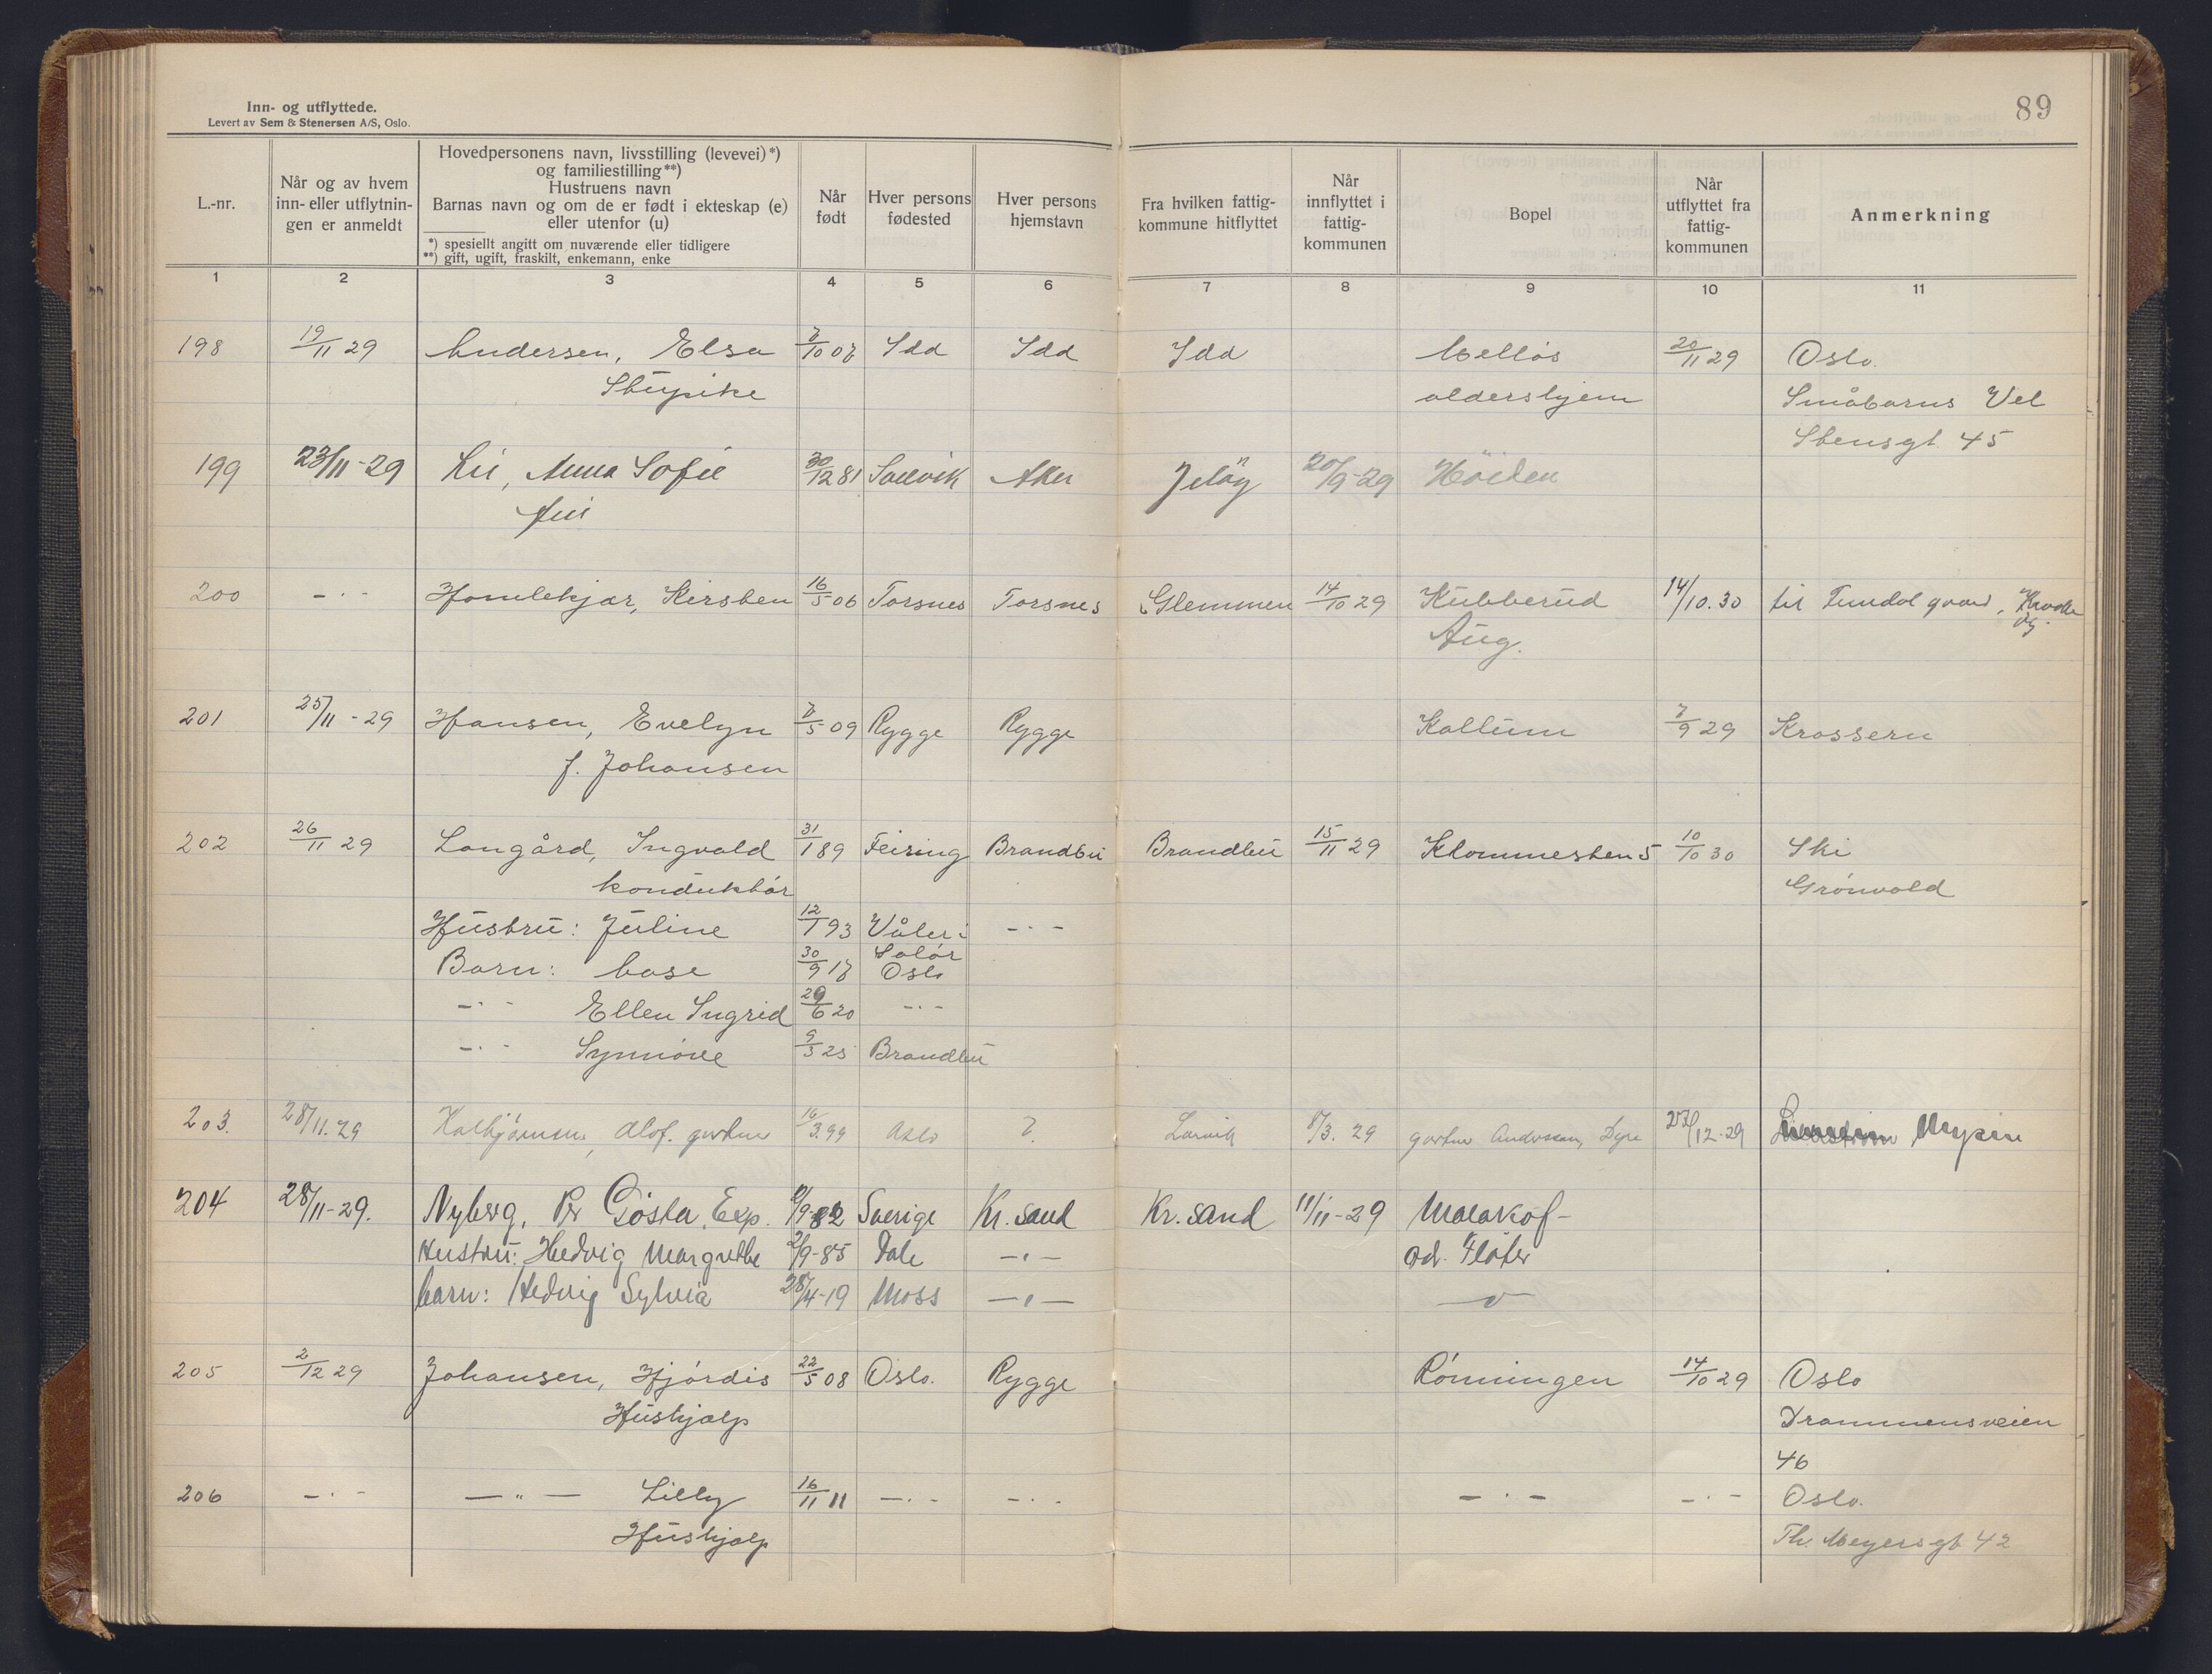 Inn- og utflyttede.
Levert av Sem & Stenersen A/S, Oslo.
89
L.-nr.
Når og av hvem inn- eller utflytnin-gen er anmeldt
Hovedpersonens navn, livsstilling (levevei)*)
og familiestilling**)
Hustruens navn
Barnas navn og om de er født i ekteskap (e)
eller utenfor (u)
*) spesielt angitt om nuværende eller tidligere
**) gift, ugift, fraskilt, enkemann, enke
Når født
Hver persons fødested
Hver persons hjemstavn
Fra hvilken fattig-kommune hitflyttet
Når innflyttet i fattig-kommunen
Bopel
Når utflyttet fra fattig-kommunen
Anmerkning
1 2 3 4 5 6 7 8 9 10 11
198 19/11 29 Andersen, Elsa 7/10 07 Idd Idd Idd Melløs 20/11 29 Oslo.
Stupike aldershjem Småbarns Vel
Stensgt. 45
199 23/11-29 Lie, Anna Sofie 30/12 81 Aker Jeløy 20/9-29 Høiden
200 -·- Homlekjær, Kirsten 16/5 06 Torsnes Torsnes Glemmen 14/10 29 Kubberud 14/10.30 til
Aug.
201 25/11-29 Hansen, Evelyn 7/5 09 Rygge Rygge Kallum 7/9 29 Krossern
f. Johansen
202 26/11 29 Langård, Ingvald 31/1 89 Feiring Brandbu Brandbu 15/11 29 Klommesten 5 10/10 30 Ski
konduktør Grønvold
Hustru: Juline 12/1 93 Våler i -·-
Solør
Barn: Aase 30/9 17 Oslo
-·- Ellen Ingrid 29/6 20 -·-
-·- Synnøve 9/3 25 Brandbu
203. 28/11.29 Kalbjørnsen, Olof. gartner 16/3.99 Oslo ? Larvik 8/3. 29 gartner Andressen, Dyre 27/12-29 Mysen
204 28/11-29. Nyberg, Per Gösta, Exp. 8/9-82 Sverige Kr. sand Kr. sand 11/11-29 Malakof-
Hustru: Hedvig Margrethe 2/9-85 Dale -·- ad. Fløter
barn: Hedvig Sylvia 28/4-19 Moss -·-
205 2/12 29 Johansen, Hjørdis 22/5 08 Oslo. Rygge Rønningen 14/10 29 Oslo
Hushjælp Drammensveien
46
206 -·- -"- Lilly 16/11 11 -·- -·- -·- -·- Oslo.
Hushjælp Th. Meyersgt 42